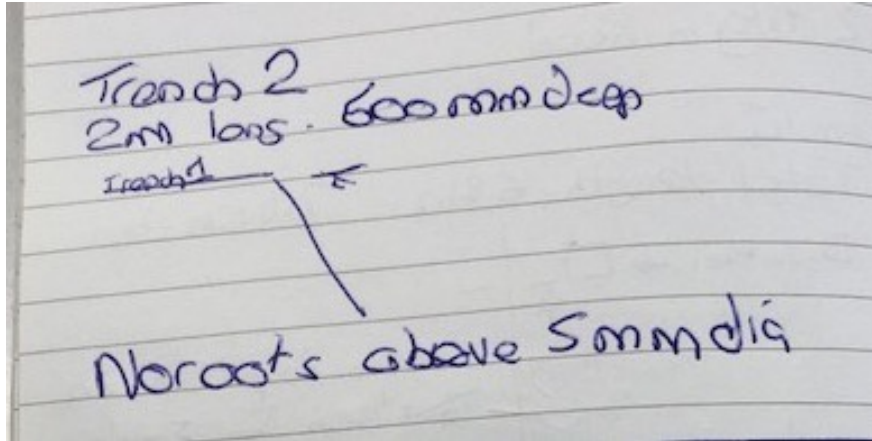 Trench 2
2m long. 600mm deep
Trench 1
No roots above 5mm dia